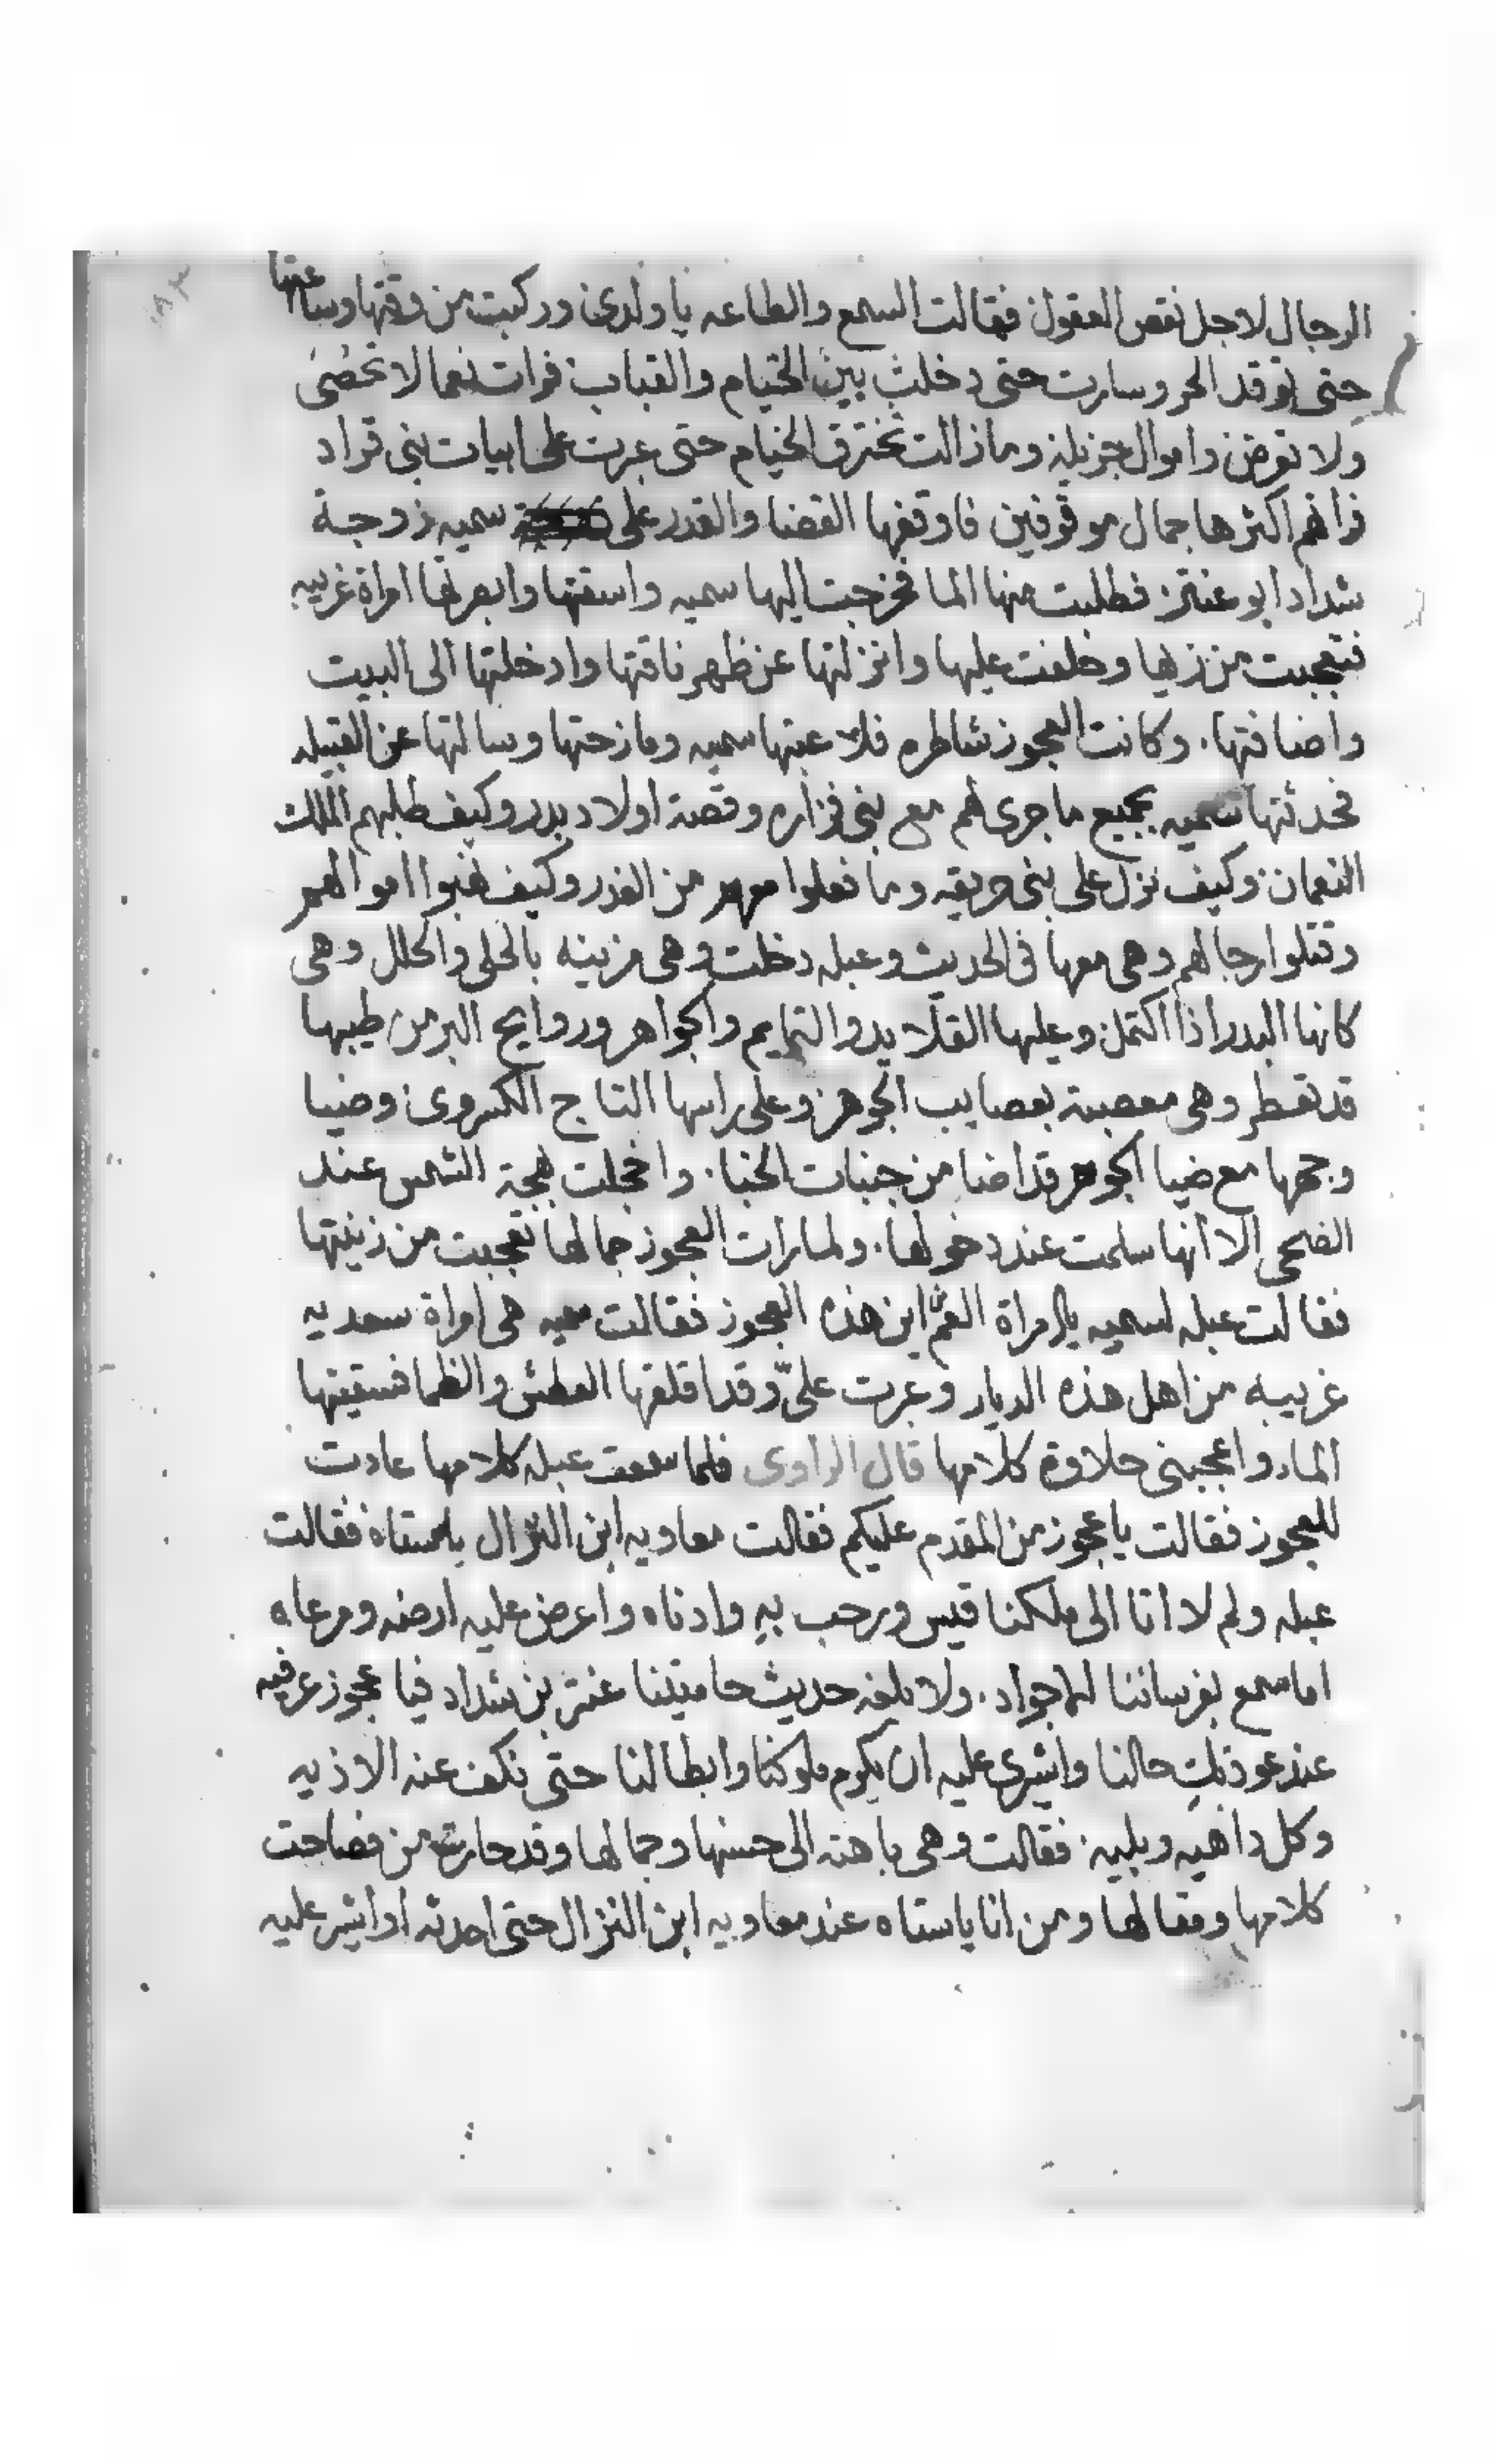 الرجال لاجل نقص العقول فقالت السمع والطاعه يا ولدى وركبت من وقتها وساعتها
حتى توقد الحر وسارت حتى دخلت بين الخيام والقباب فرات نعما لا تحصى
ولا توصف واموال جزيله وما زالت تخترق الخيام حتى عبرت على ابيات بنى قراد
فراتهم اكثرها جمال موقوفين فاوقفها القضا والقدر على سميه زوجة
شداد ابو عنتر فطلبت منها الما فخرجت اليها سميه واسقتها وابصرتها امراة غريبه
فتعجبت من زيها وحلفت عليها وانزلتها عن ظهر ناقتها وادخلتها الى البيت
واضافتها. وكانت العجوز شاطره فلاعبتها سميه ومازحتها وسالتها عن القبيله
فحدثتها سميه بجميع ما جرى لهم مع بنى فزاره وقصة اولاد بدر وكيف طلبهم الملك
النعمان وكيف نزل على بنى حريقه وما فعلوا معهم من الغدر وكيف نهبوا اموالهم
وقتلوا رجالهم وهى معها فى الحديث وعبله دخلت وهى مزينه بالحلى والحلل وهى
كانها البدر اذا اكتمل وعليها القلايد والتمايم والجواهر وروايح البر من طيبها
قد تعطر وهى معصبة بعصايب الجوهر وعلى راسها التاج الكسروى وضيا
وجهها مع ضيا الجوهر قد اضا من جنبات الخبا. واخجلت بهجة الشمس عند
الضحى الا انها سلمت عند دخولها. ولما رات العجوز جمالها تعجبت من زينتها
فقالت عبله لسميه يا امراة العم اين هذه العجوز فقالت سميه هى امراة سعديه
غريبه من اهل هذه الديار وعبرت علىّ وقد اقلقها العطش والظما فسقيتها
الماء واعجبنى حلاوة كلامها قال الراوى فلما سمعت عبله كلامها عادت
للعجوز فقالت يا عجوز من المقدم عليكم فقالت معاويه ابن النزال يا ستاه فقالت
عبله ولم لا اتا الى ملكنا قيس ورحب به وادناه واعرض عليه ارضه ومرعاه
اما سمع بفرساننا الاجواد. ولا بلغه حديث حاميتنا عنتر بن شداد فيا عجوز عرفيه
عند عودتك حالنا واشيرى عليه ان يكرم ملوكنا وابطالنا حتى نكف عنه الاذيه
وكل داهيه وبليه. فقالت وهى باهته الى حسنها وجمالها وقد حارت من فصاحت
كلامها ومقالها ومن انا يا ستاه عند معاويه ابن النزال حتى احدثه او اشير عليه